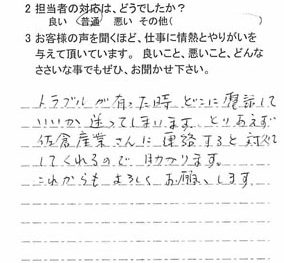 2 担当者の対応は、どうでしたか？
良い 普通 悪い その他(
3 お客様の声を聞くほど、仕事に情熱とやりがいを
与えて頂いています。良いこと、悪いこと、どんな
ささいな事でもぜひ、お聞かせ下さい。
トラブルが有った時 どこに電話して
いいか 迷ってしまいます。とりあえず
佐倉産業さんに連絡すると対処
してくれるので助かります。
これからも よろしく お願いします。